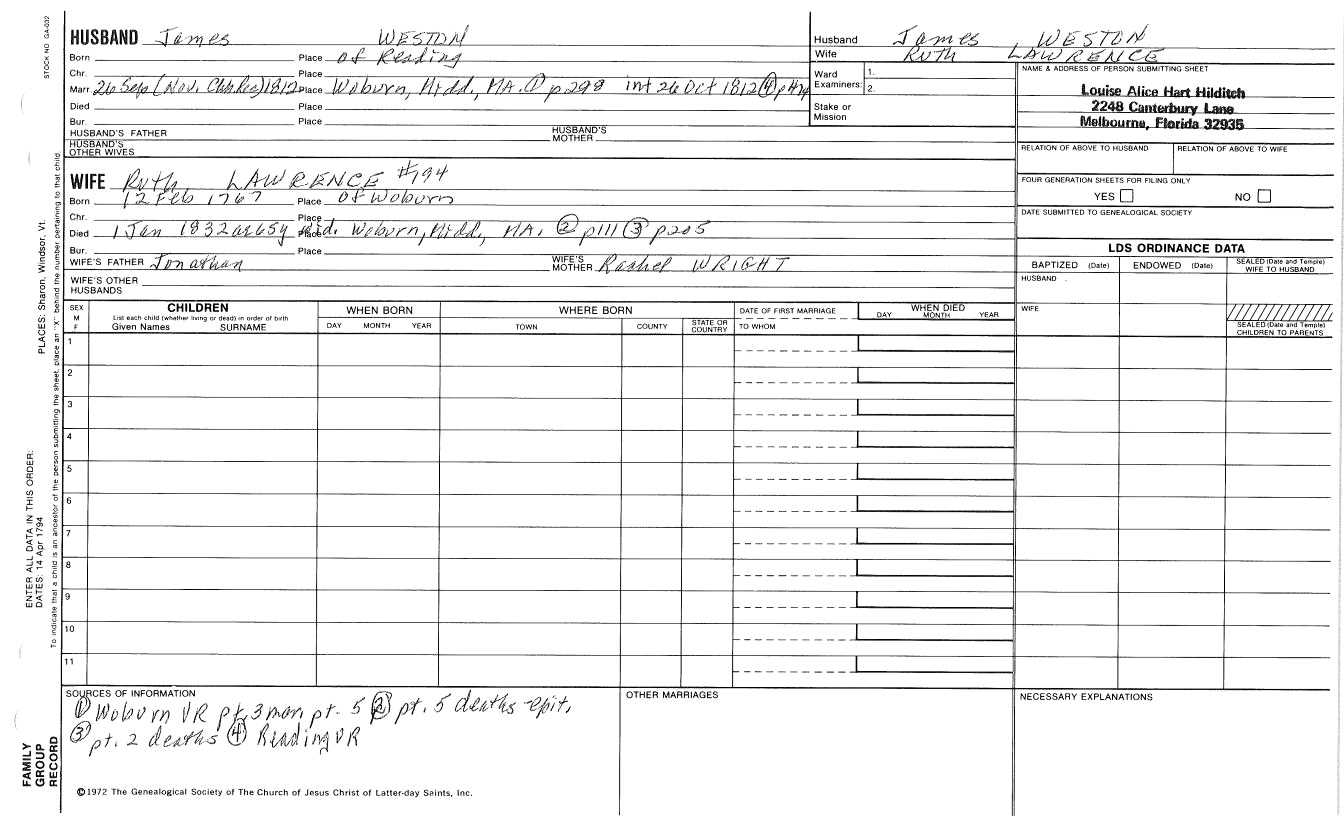 STOCK NO. GA-032
HUSBAND James WESTON
Born Place of Reading
Chr. Place
Marr. 26 Sep (Nov. Ch Rec) 1812 Place Woburn, Midd, MA. ① p298 int 26 Oct 1812 ④
Died Place
Bur. Place
HUSBAND'S FATHER HUSBAND'S MOTHER
HUSBAND'S OTHER WIVES
Husband James WESTON
Wife RUTH LAWRENCE
Ward Examiners: 1. 2.
Stake or Mission
NAME & ADDRESS OF PERSON SUBMITTING SHEET
Louise Alice Hart Hilditch
2248 Canterbury Lane
Melbourne, Florida 32935
RELATION OF ABOVE TO HUSBAND RELATION OF ABOVE TO WIFE
FOUR GENERATION SHEETS FOR FILING ONLY
YES NO
DATE SUBMITTED TO GENEALOGICAL SOCIETY
WIFE Ruth LAWRENCE #194
Born 12 Feb 1767 Place of Woburn
Chr. Place
Died 1 Jan 1832 ae 65y Place Midd. Woburn, Midd, MA. ② p111 ③ p205
Bur. Place
WIFE'S FATHER Jonathan WIFE'S MOTHER Rachel WRIGHT
WIFE'S OTHER HUSBANDS
LDS ORDINANCE DATA
BAPTIZED (Date) ENDOWED (Date) SEALED (Date and Temple) WIFE TO HUSBAND
HUSBAND
WIFE
SEALED (Date and Temple) CHILDREN TO PARENTS
SEX M F
CHILDREN
List each child (whether living or dead) in order of birth
Given Names SURNAME
WHEN BORN
DAY MONTH YEAR
WHERE BORN
TOWN COUNTY STATE OR COUNTRY
DATE OF FIRST MARRIAGE
TO WHOM
WHEN DIED
DAY MONTH YEAR
1
2
3
4
5
6
7
8
9
10
11
SOURCES OF INFORMATION
① Woburn VR pt. 3 mar. pt. 5 ② pt. 5 deaths epit.
③ pt. 2 deaths ④ Reading VR
OTHER MARRIAGES
NECESSARY EXPLANATIONS
©1972 The Genealogical Society of The Church of Jesus Christ of Latter-day Saints, Inc.
FAMILY GROUP RECORD
ENTER ALL DATA IN THIS ORDER:
DATES: 14 Apr 1794 PLACES: Sharon, Windsor, Vt.
To indicate that a child is an ancestor of the person submitting the sheet, place an "X" behind the number pertaining to that child.